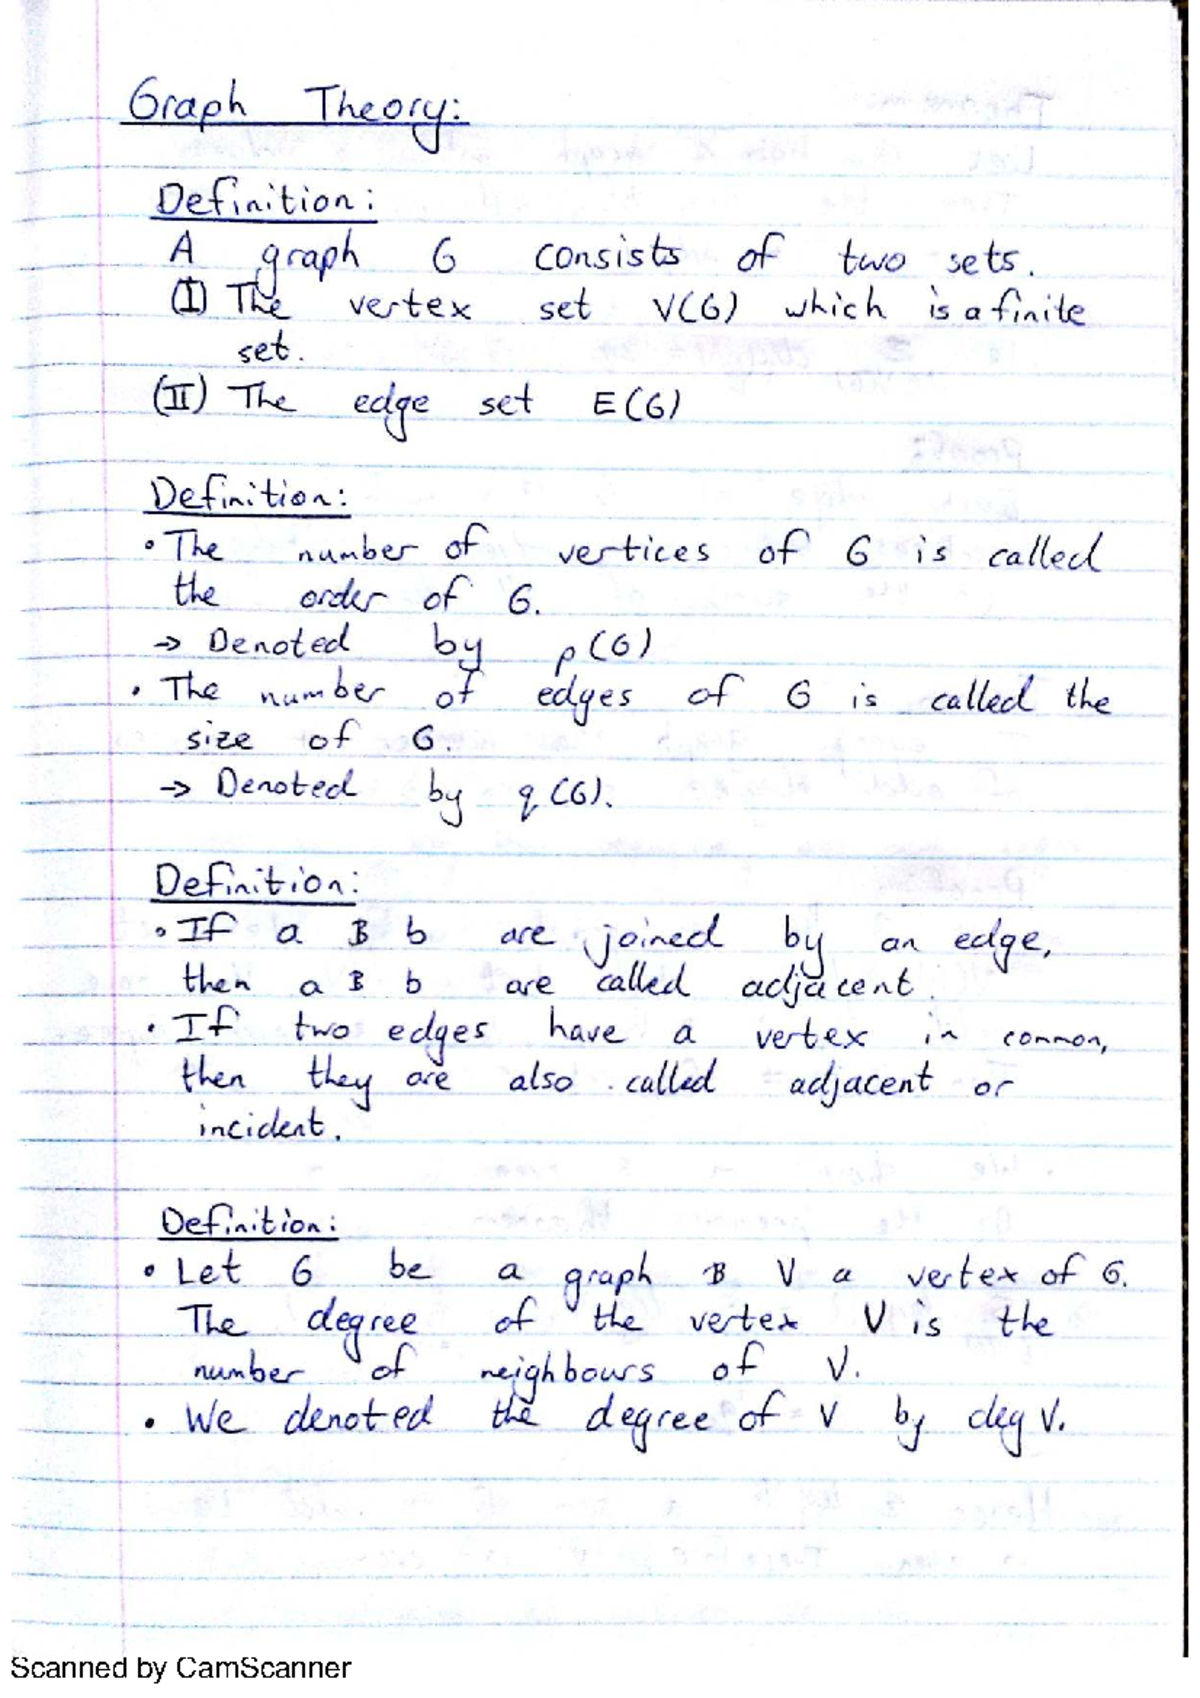 Graph Theory:
Definition:
A graph G consists of two sets.
(I) The vertex set V(G) which is a finite
set.
(II) The edge set E(G)
Definition:
• The number of vertices of G is called
the order of G.
→ Denoted by p(G)
• The number of edges of G is called the
size of G.
→ Denoted by q(G).
Definition:
• If a & b are joined by an edge,
then a & b are called adjacent.
• If two edges have a vertex in common,
then they are also called adjacent or
incident.
Definition:
• Let G be a graph & V a vertex of G.
The degree of the vertex V is the
number of neighbours of V.
• We denoted the degree of V by deg V.
Scanned by CamScanner